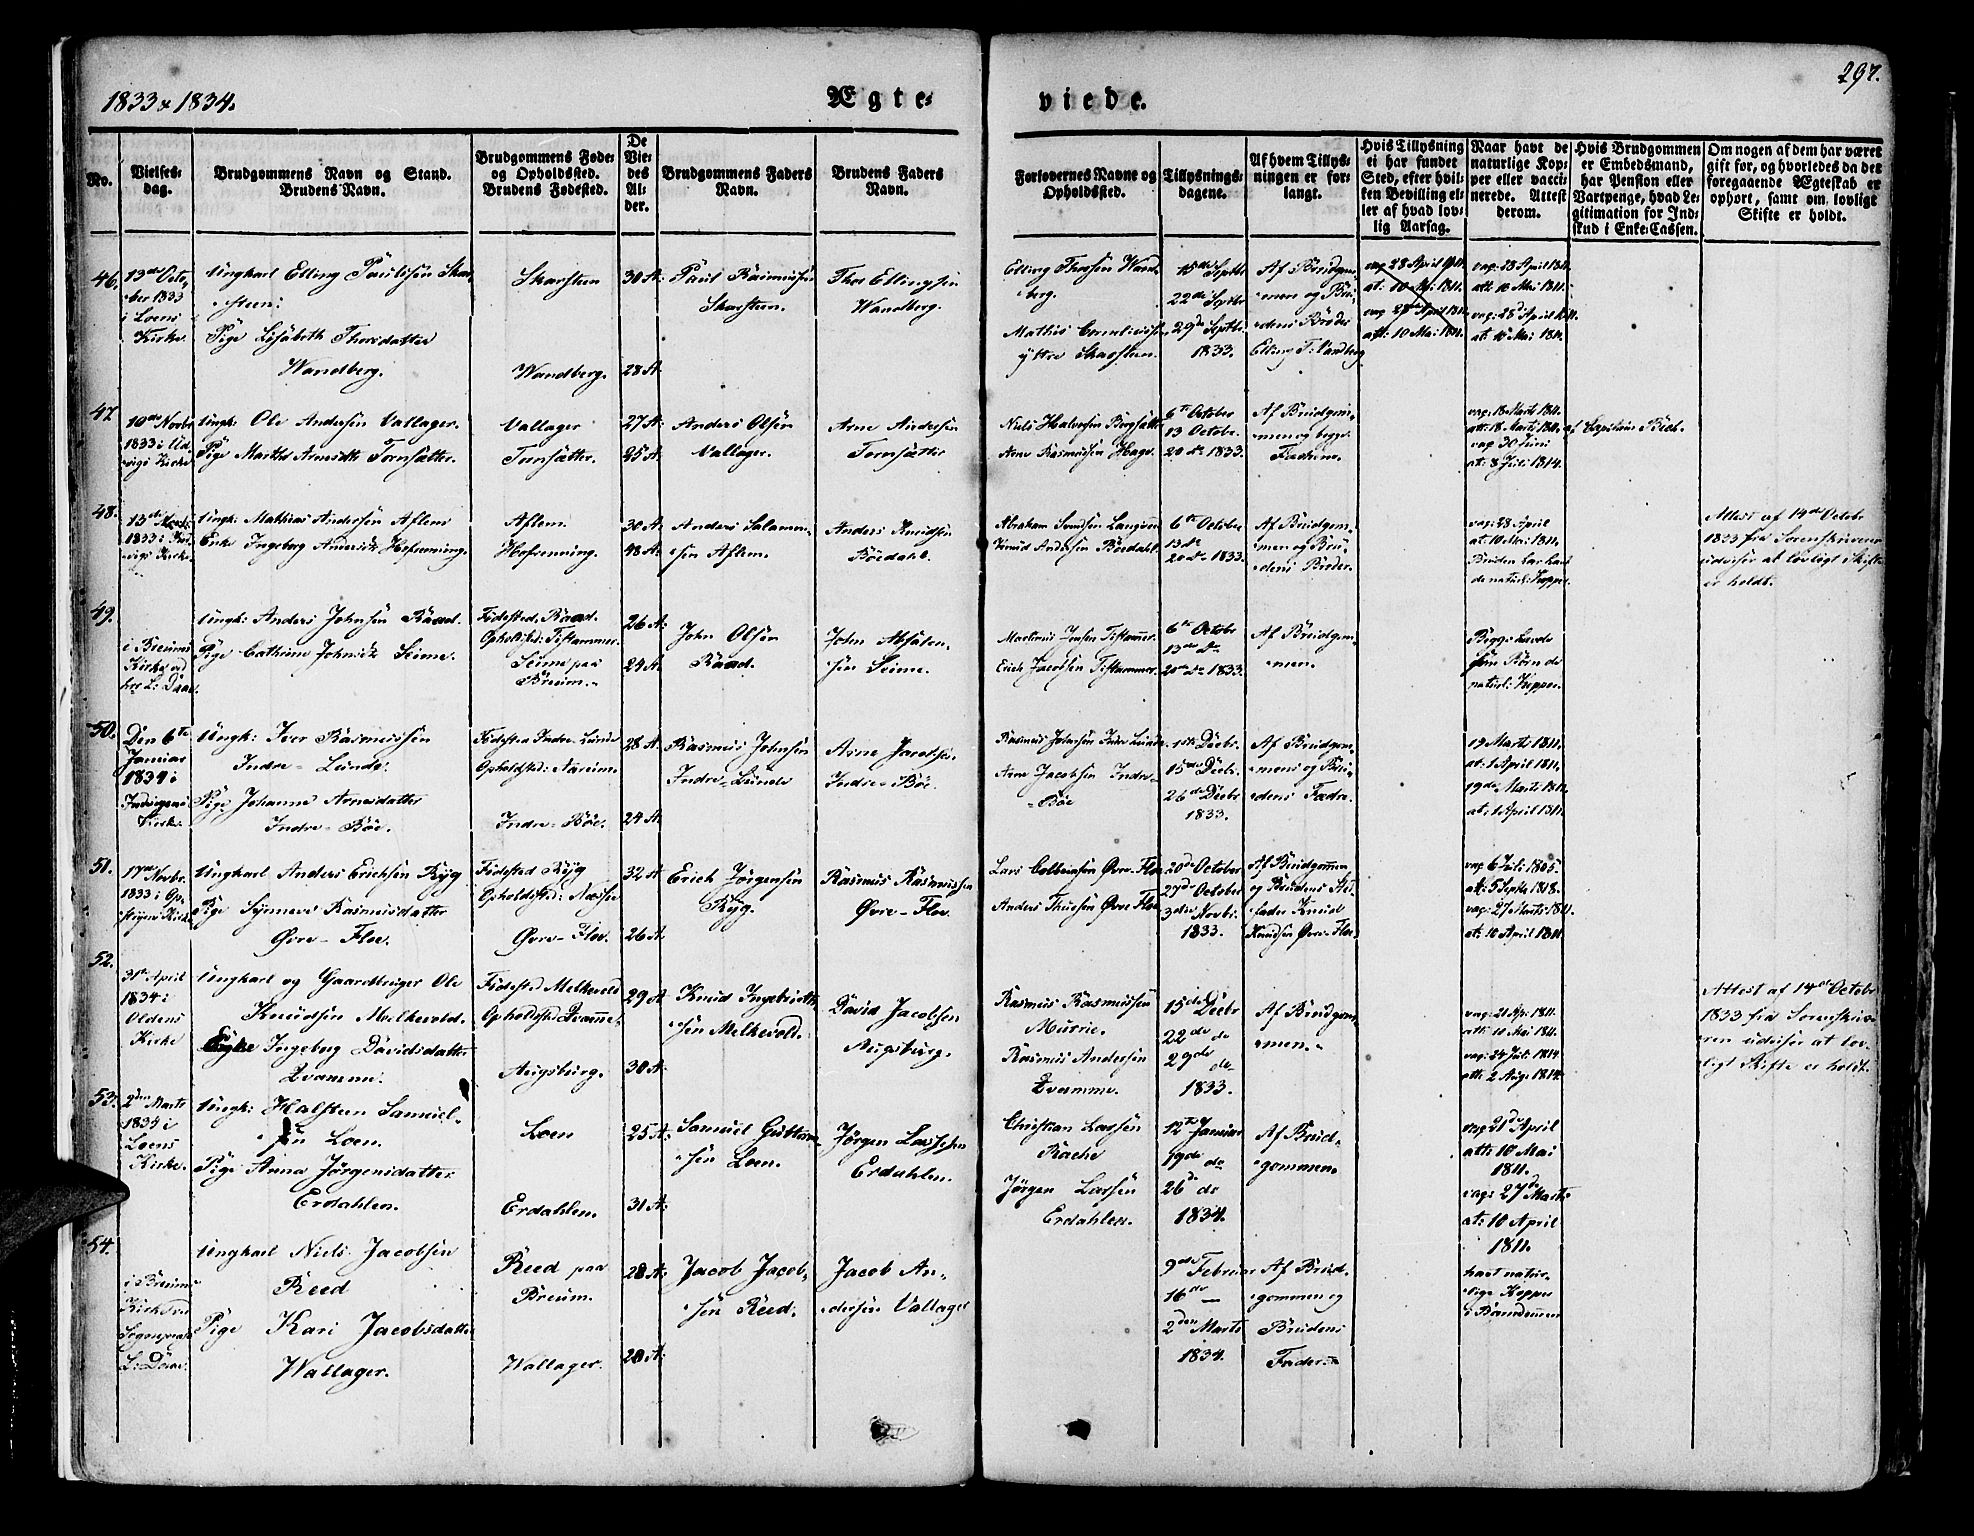 1833 & 1834.
Ægte=
viede.
297.
No.
Vielses-
dag.
Brudgommens Navn og Stand.
Brudens Navn.
Brudgommens Føde-
og Opholdssted.
Brudens Fødested.
De
Vie-
des
Al-
der.
Brudgommens Faders
Navn.
Brudens Faders
Navn.
Forlovernes Navne og
Opholdssted.
Tillysnings-
dagene.
Af hvem Tillys-
ningen er for-
langt.
Hvis Tillysning
ei har fundet
Sted, efter hvil-
ken Bevilling el-
ler af hvad lov-
lig Aarsag.
Naar havt de
naturlige Kop-
per eller vacci-
nerede. Attest
derom.
Hvis Brudgommen
er Embedsmand,
har Pension eller
Vartpenge, hvad Le-
gitimation for Ind-
skud i Enke-Cassen.
Om nogen af dem har været
gift før, og hvorledes da det
foregaaende Ægteskab er
ophørt, samt om lovligt
Skifte er holdt.
46.
13de Octo-
ber 1833
i Loens
Kirke
Ungkarl Elling Paulsen Skar-
steen:
Pige Lisabeth Thorsdatter
Wandberg.
Skarsteen
Wandberg.
30 A:
28 A
Paul Rasmussen
Skarsteen.
Thor Ellingsen
Wandberg.
Elling Thorsen Wand-
berg.
Mathis Corneliussen
yttre Skarsteen.
15de Septbr
22de Septbr
29de Septbr
1833.
Af Brudgom-
men og Bru-
dens Broder
Elling T: Vandberg
vac: 28 April 1811.
at: 10 Mai 1811.
vac: 28 April 1811.
att: 10 Mai 1811.
vac: 28 April 1811.
att: 10 Mai 1811.
vac: 25 April 1811.
at: 10 Mai 1811.
47.
10de Novbr
1833 i Ud-
vigs Kirke
Ungk: Ole Andersen Vallager.
Pige Martha Arnesdtr Tornsætter.
Vallager
Tornsætter.
27 A:
25 A.
Anders Olsen
Vallager.
Arne Andersen
Tornsætter
Niels Halvorsen Bergsætt
Arne Rasmussen Hage.
6te October
13 Octobr.
20 de 1833.
Af Brudgom-
men og begge
Fædrene.
vac: 18 Marts 1811.
att: 18 Marts 1811.
vac 30 Juni
at: 8 Juli 1814.
48.
1833 i Ind-
vigs Kirke.
Ungk: Mathias Andersen Aflem
Enke Ingeborg Andersdtr Hofrenning.
Aflem.
Hofrenning.
30 A:
48 A:
Anders Salamon-
sen Aflem.
Anders Knudsen
Bördahl.
Knud Andersen Bördahl.
6te Octobr
13 de
20 de 1833.
Af Brudgom-
men og Bru-
dens Broder.
vac: 28 April
at: 10 Mai 1811.
Bruden har havt
de naturl: Kopper.
Attest af 14de Octobr
1833 fra Sorenskriveren
udviser at lovligt Skifte
er holdt.
49.
i Breums
Kirke ved
Ungk: Anders Johnsen Raad.
Pige Cathrine Johnsdtr Seime.
Födested. Raad.
Opholdstd: Tistammer.
Seime paa
Breum.
26 A:
24 A.
John Olsen
Raad.
John Absalon-
sen Seime.
Martinus Jensen Tistammer.
Erich Jacobsen Tistammer.
6te Octobr
13de de
20de de 1833.
Af Brudgom-
men.
Begge havde
som Börn de
naturl: Kopper.
50.
Den 6te
Januar
1834 i
Indvigens
Kirke.
Ungk: Iver Rasmussen
Indre-Lunde.
Pige Johanne Arnesdatter
Indre-Böe.
Födested Indre Lunde
Opholdsted: Nareim.
Indre-Böe.
28 A.
24 A.
Rasmus Johnsen
Indre-Lunde
Arne Jacobsen
Indre-Böe.
Rasmus Johnsen Indre Lunde
Arne Jacobsen Indre-
Böe
1ste Decbr.
15de Decbr.
26de Decbr
1833.
Af Brudgom-
mens og Bru-
dens Fædre.
19 Marts 1811.
at: 1 April 1811.
19de Marts 1811.
at: 1 April 1811.
51.
17de Novbr.
1833 i Op-
stryns Kirke
Ungkarl Anders Erichsen Ryg
Pige Synneve Rasmusdatter
Øvre-Floe.
Födested Ryg
Opholdsted: Næsse
Øvre-Floe.
32 A
26 A:
Erich Jörgensen
Ryg.
Rasmus Rasmussen
Øvre-Floe.
Lars Colbeinsen Øvre-Floe
Anders Thuesen Øvre Floe
20de October
27de October
3die Novbr.
1833.
Af Brudgommen
og Brudens Stif-
fader Knud
Knudsen Øvre-Floe.
vac: 6 Juli 1805.
at: 5 Septbr 1818.
vac: 27 Marts 1811.
at: 10 April 1811.
52.
31te April
1834 i
Oldens
Kirke
Ungkarl og Gaardbruger Ole
Knudsen Melkevold.
Enke Ingeborg Davidsdatter
Qvamme.
Födested Melkevold
Opholdsted Qvamme
Augsburg.
29 A
30 A:
Knud Ingebrigt-
sen Melkevold.
David Jacobsen
Augsburg.
Rasmus Rasmussen
Murrie.
Rasmus Andersen
Qvamme.
15de Decbr
22de de
29de de
1833.
Af Brudgom-
men.
vac: 21 Apr: 1811.
att: 10 Mai 1811.
vac: 24 Juli 1814
att: 2 Aug: 1814.
Attest af 14de Octobr
1833 fra Sorenskrive-
ren udviser at lov-
ligt Skifte er holdt.
53.
2den Marts
1834 i
Loens
Kirke.
Ungk: Halsteen Samuel-
sen Loen.
Pige Anna Jörgensdatter
Erdahlen.
Loen
Erdahlen.
25 A:
31 A:
Samuel Guttorm-
sen Loen.
Jörgen Lassesen
Erdahlen.
Christian Larsen
Rache
Jörgen Larsen
Erdahlen.
12te Januar
19de de
26de de
1834.
Af Brud-
gommen
vac 21de April
att: 10 Mai
1811.
vac: 27de Marts
at: 10 April
1811.
54.
i Breums
Ungkarl Niels Jacobsen
Reed
Pige Kari Jacobsdatter
Wallager.
Reed paa
Breum.
Wallager.
28 A:
28 A:
Jacob Jacob-
sen Reed.
Jacob An-
dersen Vallager
9de Februar
16de —
2den Marts
1834.
Af Brud-
gommen og
Brudens
Fader
havt natur-
lige Kopper
i Barndommen